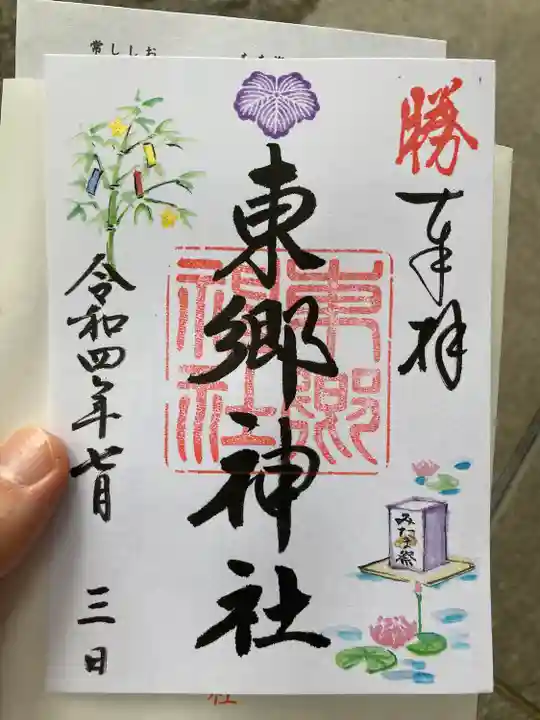 勝
奉拝
東郷神社
東郷神社
令和四年七月
三日
みたま祭
社